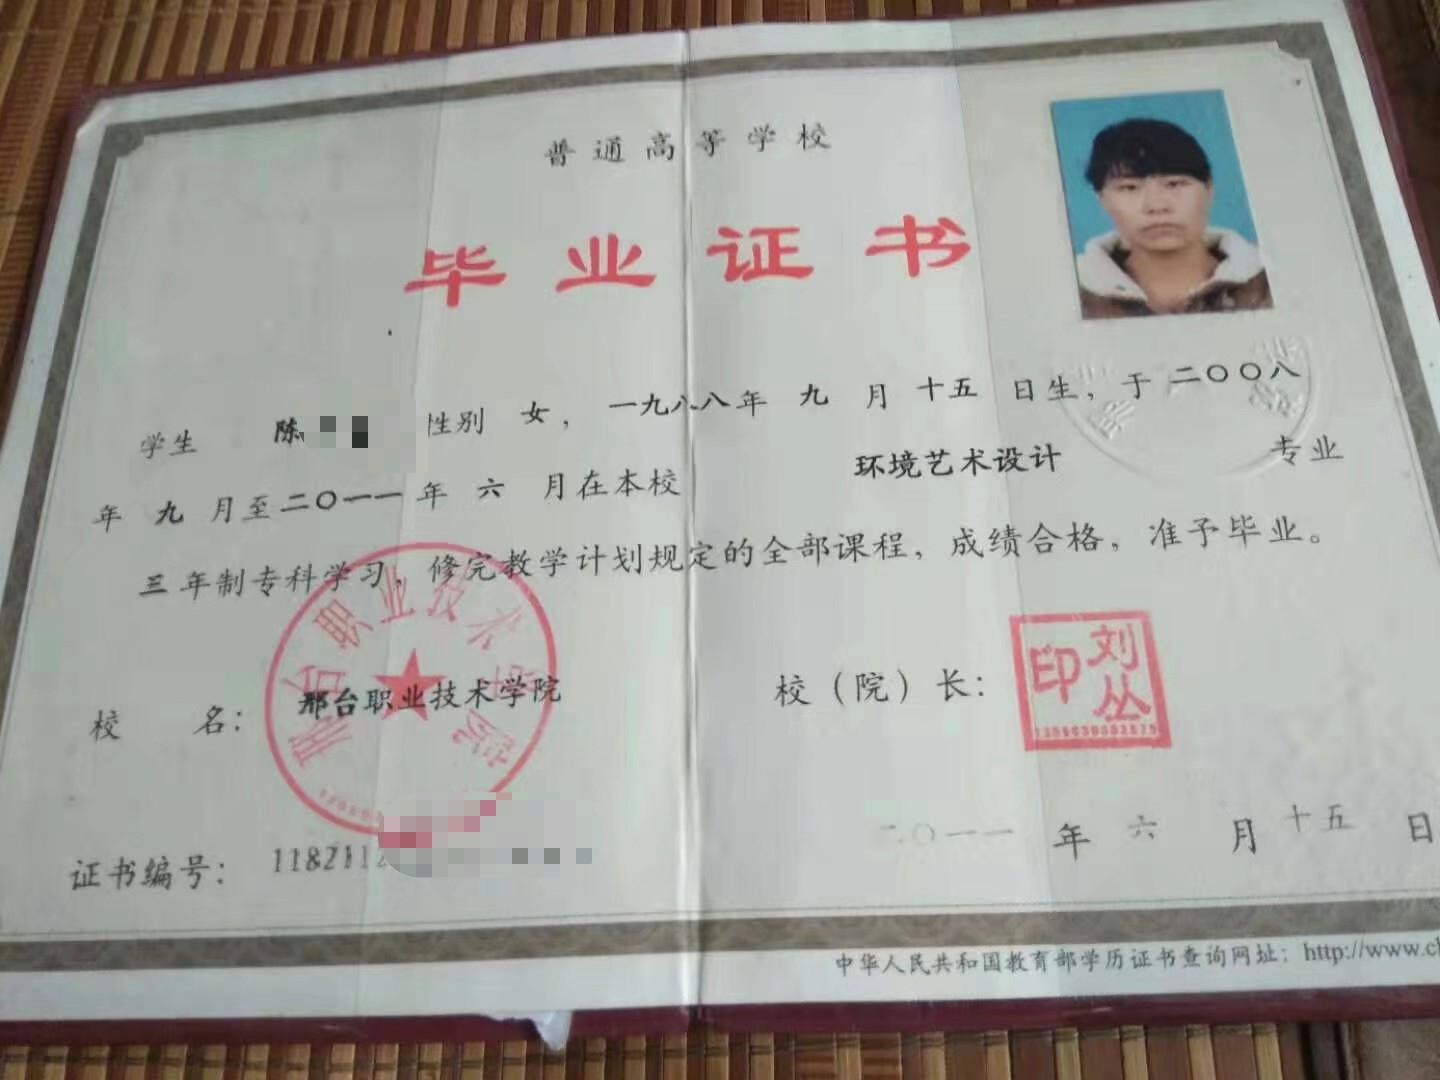 普通高等学校
毕业证书
学生 陈 性别 女，一九八八年 九 月 十五 日生，于 二〇〇八
年 九 月至二〇一一年 六 月在本校 环境艺术设计 专业
三年制专科学习，修完教学计划规定的全部课程，成绩合格，准予毕业。
邢台职业技术学院
校 名：邢台职业技术学院
校（院）长：
刘丛印
证书编号：1182112
二〇一一年 六 月 十五 日
中华人民共和国教育部学历证书查询网址：http://www.c